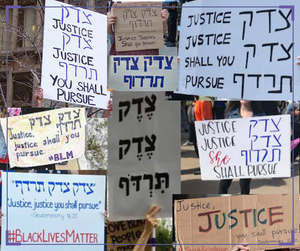 צדק
JUSTICE
צדק
JUSTICE
תרדף
YOU SHALL
PURSUE
צדק צדק
תרדף
Justice Justice
You Shall Pursue
צדק צדק
תרדוף
JUSTICE צדק
JUSTICE צדק
SHALL YOU
PURSUE תרדף
צדק צדק
תרדף
Justice, justice
you shall
pursue.
#BLM
צֶדֶק
צֶדֶק
תִּרְדֹּף
JUSTICE צדק
JUSTICE צדק
She
SHALL PURSUE תרדוף
"צדק צדק תרדף"
"Justice, justice
you shall pursue"
-Deuteronomy 16:20
#BLACKLIVESMATTER
Justice,
JUSTICE
you shall pursue